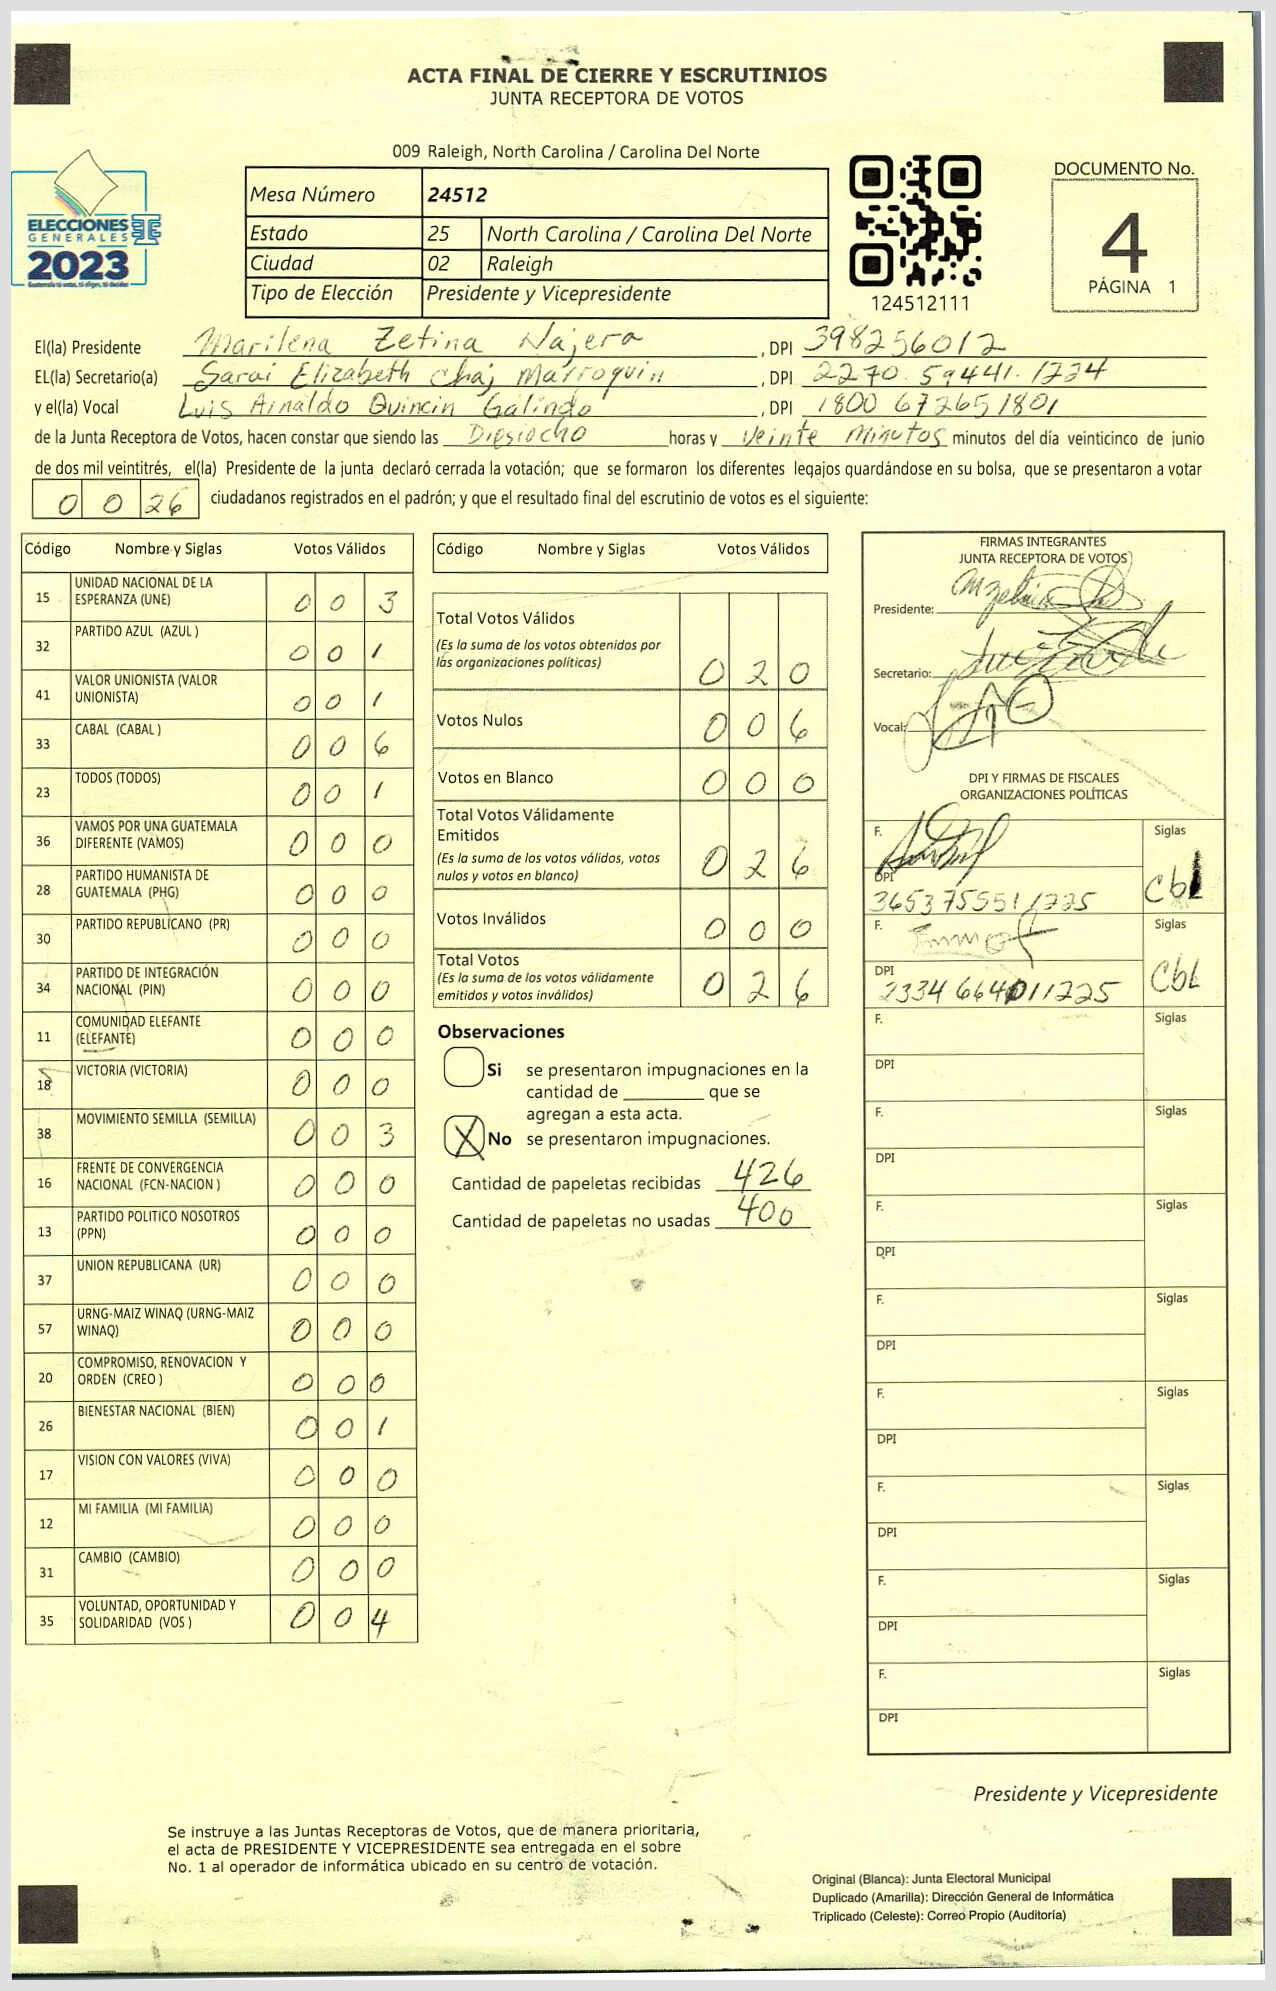 ACTA FINAL DE CIERRE Y ESCRUTINIOS
JUNTA RECEPTORA DE VOTOS
009 Raleigh, North Carolina / Carolina Del Norte
ELECCIONES
GENERALES
2023
Guatemala tú votas, tú eliges, tú decides
Mesa Número 24512
Estado 25 North Carolina / Carolina Del Norte
Ciudad 02 Raleigh
Tipo de Elección Presidente y Vicepresidente
124512111
DOCUMENTO No.
4
PÁGINA 1
El(la) Presidente Marilena Zetina Najera , DPI 398256012
EL(la) Secretario(a) Sarai Elizabeth Chaj Marroquin , DPI 2270.59441.1224
y el(la) Vocal Luis Arnaldo Quincin Galindo , DPI 1800 672651801
de la Junta Receptora de Votos, hacen constar que siendo las Diesiocho horas y veinte minutos minutos del día veinticinco de junio
de dos mil veintitrés, el(la) Presidente de la junta declaró cerrada la votación; que se formaron los diferentes legajos quardándose en su bolsa, que se presentaron a votar
0 0 26 ciudadanos registrados en el padrón; y que el resultado final del escrutinio de votos es el siguiente:
Código Nombre y Siglas Votos Válidos
15 UNIDAD NACIONAL DE LA
ESPERANZA (UNE) 0 0 3
32 PARTIDO AZUL (AZUL ) 0 0 1
41 VALOR UNIONISTA (VALOR
UNIONISTA) 0 0 1
33 CABAL (CABAL ) 0 0 6
23 TODOS (TODOS) 0 0 1
36 VAMOS POR UNA GUATEMALA
DIFERENTE (VAMOS) 0 0 0
28 PARTIDO HUMANISTA DE
GUATEMALA (PHG) 0 0 0
30 PARTIDO REPUBLICANO (PR) 0 0 0
34 PARTIDO DE INTEGRACIÓN
NACIONAL (PIN) 0 0 0
11 COMUNIDAD ELEFANTE
(ELEFANTE) 0 0 0
18 VICTORIA (VICTORIA) 0 0 0
38 MOVIMIENTO SEMILLA (SEMILLA) 0 0 3
16 FRENTE DE CONVERGENCIA
NACIONAL (FCN-NACION ) 0 0 0
13 PARTIDO POLITICO NOSOTROS
(PPN) 0 0 0
37 UNION REPUBLICANA (UR) 0 0 0
57 URNG-MAIZ WINAQ (URNG-MAIZ
WINAQ) 0 0 0
20 COMPROMISO, RENOVACION Y
ORDEN (CREO ) 0 0 0
26 BIENESTAR NACIONAL (BIEN) 0 0 1
17 VISION CON VALORES (VIVA) 0 0 0
12 MI FAMILIA (MI FAMILIA) 0 0 0
31 CAMBIO (CAMBIO) 0 0 0
35 VOLUNTAD, OPORTUNIDAD Y
SOLIDARIDAD (VOS ) 0 0 4
Código Nombre y Siglas Votos Válidos
Total Votos Válidos
(Es la suma de los votos obtenidos por
las organizaciones políticas) 0 2 0
Votos Nulos 0 0 6
Votos en Blanco 0 0 0
Total Votos Válidamente
Emitidos
(Es la suma de los votos válidos, votos
nulos y votos en blanco) 0 2 6
Votos Inválidos 0 0 0
Total Votos
(Es la suma de los votos válidamente
emitidos y votos inválidos) 0 2 6
Observaciones
Si se presentaron impugnaciones en la
cantidad de ________ que se
agregan a esta acta.
X No se presentaron impugnaciones.
Cantidad de papeletas recibidas 426
Cantidad de papeletas no usadas 400
FIRMAS INTEGRANTES
JUNTA RECEPTORA DE VOTOS
Presidente:
Secretario:
Vocal:
DPI Y FIRMAS DE FISCALES
ORGANIZACIONES POLÍTICAS
F. Siglas
DPI CbL
3653755511225
F. Siglas
DPI CbL
2334 664011225
F. Siglas
DPI
F. Siglas
DPI
F. Siglas
DPI
F. Siglas
DPI
F. Siglas
DPI
F. Siglas
DPI
F. Siglas
DPI
F. Siglas
DPI
Presidente y Vicepresidente
Se instruye a las Juntas Receptoras de Votos, que de manera prioritaria,
el acta de PRESIDENTE Y VICEPRESIDENTE sea entregada en el sobre
No. 1 al operador de informática ubicado en su centro de votación.
Original (Blanca): Junta Electoral Municipal
Duplicado (Amarilla): Dirección General de Informática
Triplicado (Celeste): Correo Propio (Auditoría)